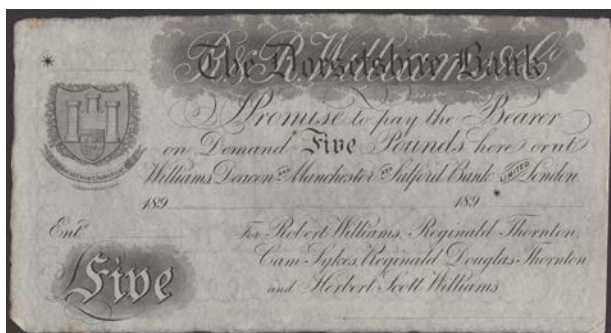 The Dorsetshire Bank
R. & R. Williams & Co.
I Promise to pay the Bearer
on Demand Five Pounds here or at
Williams Deacon and Manchester and Salford Bank LIMITED London.
189 189
Entd. For Robert Williams, Reginald Thornton,
Cam Sykes, Reginald Douglas Thornton
and Herbert Scott Williams
Five